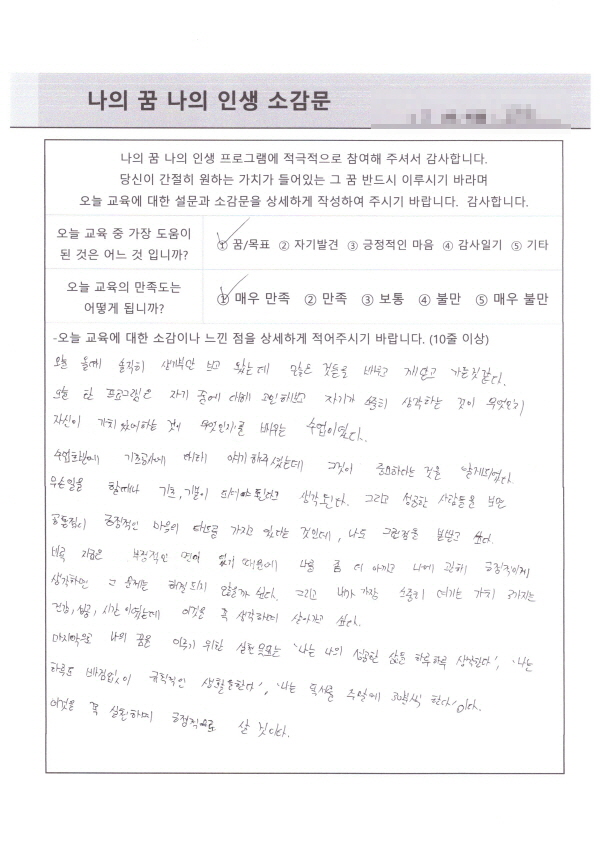 나의 꿈 나의 인생 소감문
나의 꿈 나의 인생 프로그램에 적극적으로 참여해 주셔서 감사합니다.
당신이 간절히 원하는 가치가 들어있는 그 꿈 반드시 이루시기 바라며
오늘 교육에 대한 설문과 소감문을 상세하게 작성하여 주시기 바랍니다. 감사합니다.
오늘 교육 중 가장 도움이
된 것은 어느 것 입니까?
① 꿈/목표 ② 자기발견 ③ 긍정적인 마음 ④ 감사일기 ⑤ 기타
오늘 교육의 만족도는
어떻게 됩니까?
① 매우 만족 ② 만족 ③ 보통 ④ 불만 ⑤ 매우 불만
-오늘 교육에 대한 소감이나 느낀 점을 상세하게 적어주시기 바랍니다. (10줄 이상)
오늘 솔직히 보고 왔는데 많은 것들을 배우고 가는것같다.
오늘 한 프로그램은 자기 꿈에 대해 고민해보고 자기가 생각하는 것이 무엇인지
자신이 가치있어하는 것이 무엇인지를 배우는 수업이었다.
수업초반에 기초공사에 대해 얘기해주셨는데 그것이 중요하다는 것을 알게되었다.
무슨일을 할때나 기초, 기본이 되어야된다고 생각된다. 그리고 성공한 사람들을 보면
공통점이 긍정적인 마음의 태도를 가지고 있다는 것인데, 나도 그런점을 본받고 싶다.
비록 지금은 부정적인 면이 있기 때문에 나를 좀 더 아끼고 나에 관해 긍정적이게
생각하면 그 문제는 해결되지 않을까 싶다. 그리고 내가 가장 소중히 여기는 가치 3가지는
건강, 성공, 시간이었는데 이것은 꼭 생각하며 살아가고 싶다.
마지막으로 나의 꿈을 이루기 위한 실천목표는 '나는 나의 성공한 삶을 하루하루 상상한다', '나는
하루도 빠짐없이 규칙적인 생활을한다', '나는 독서를 주일에 30분씩 한다'이다.
이것을 꼭 실천하며 긍정적으로 살 것이다.